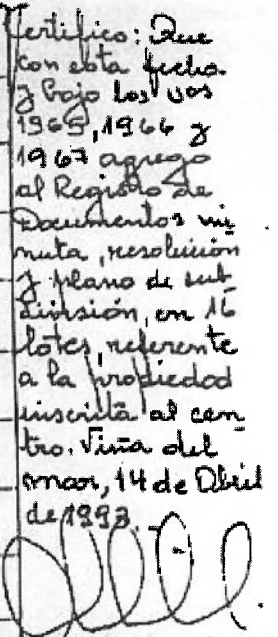 Certifico: Que
con esta fecha
y bajo los Nos
1965, 1966 y
1967 agrego
al Registro de
Documentos mi
nuta, resolución
y plano de sub
división, en 16
lotes, referente
a la propiedad
inscrita al cen
tro. Viña del
mar, 14 de Abril
de 1993.-